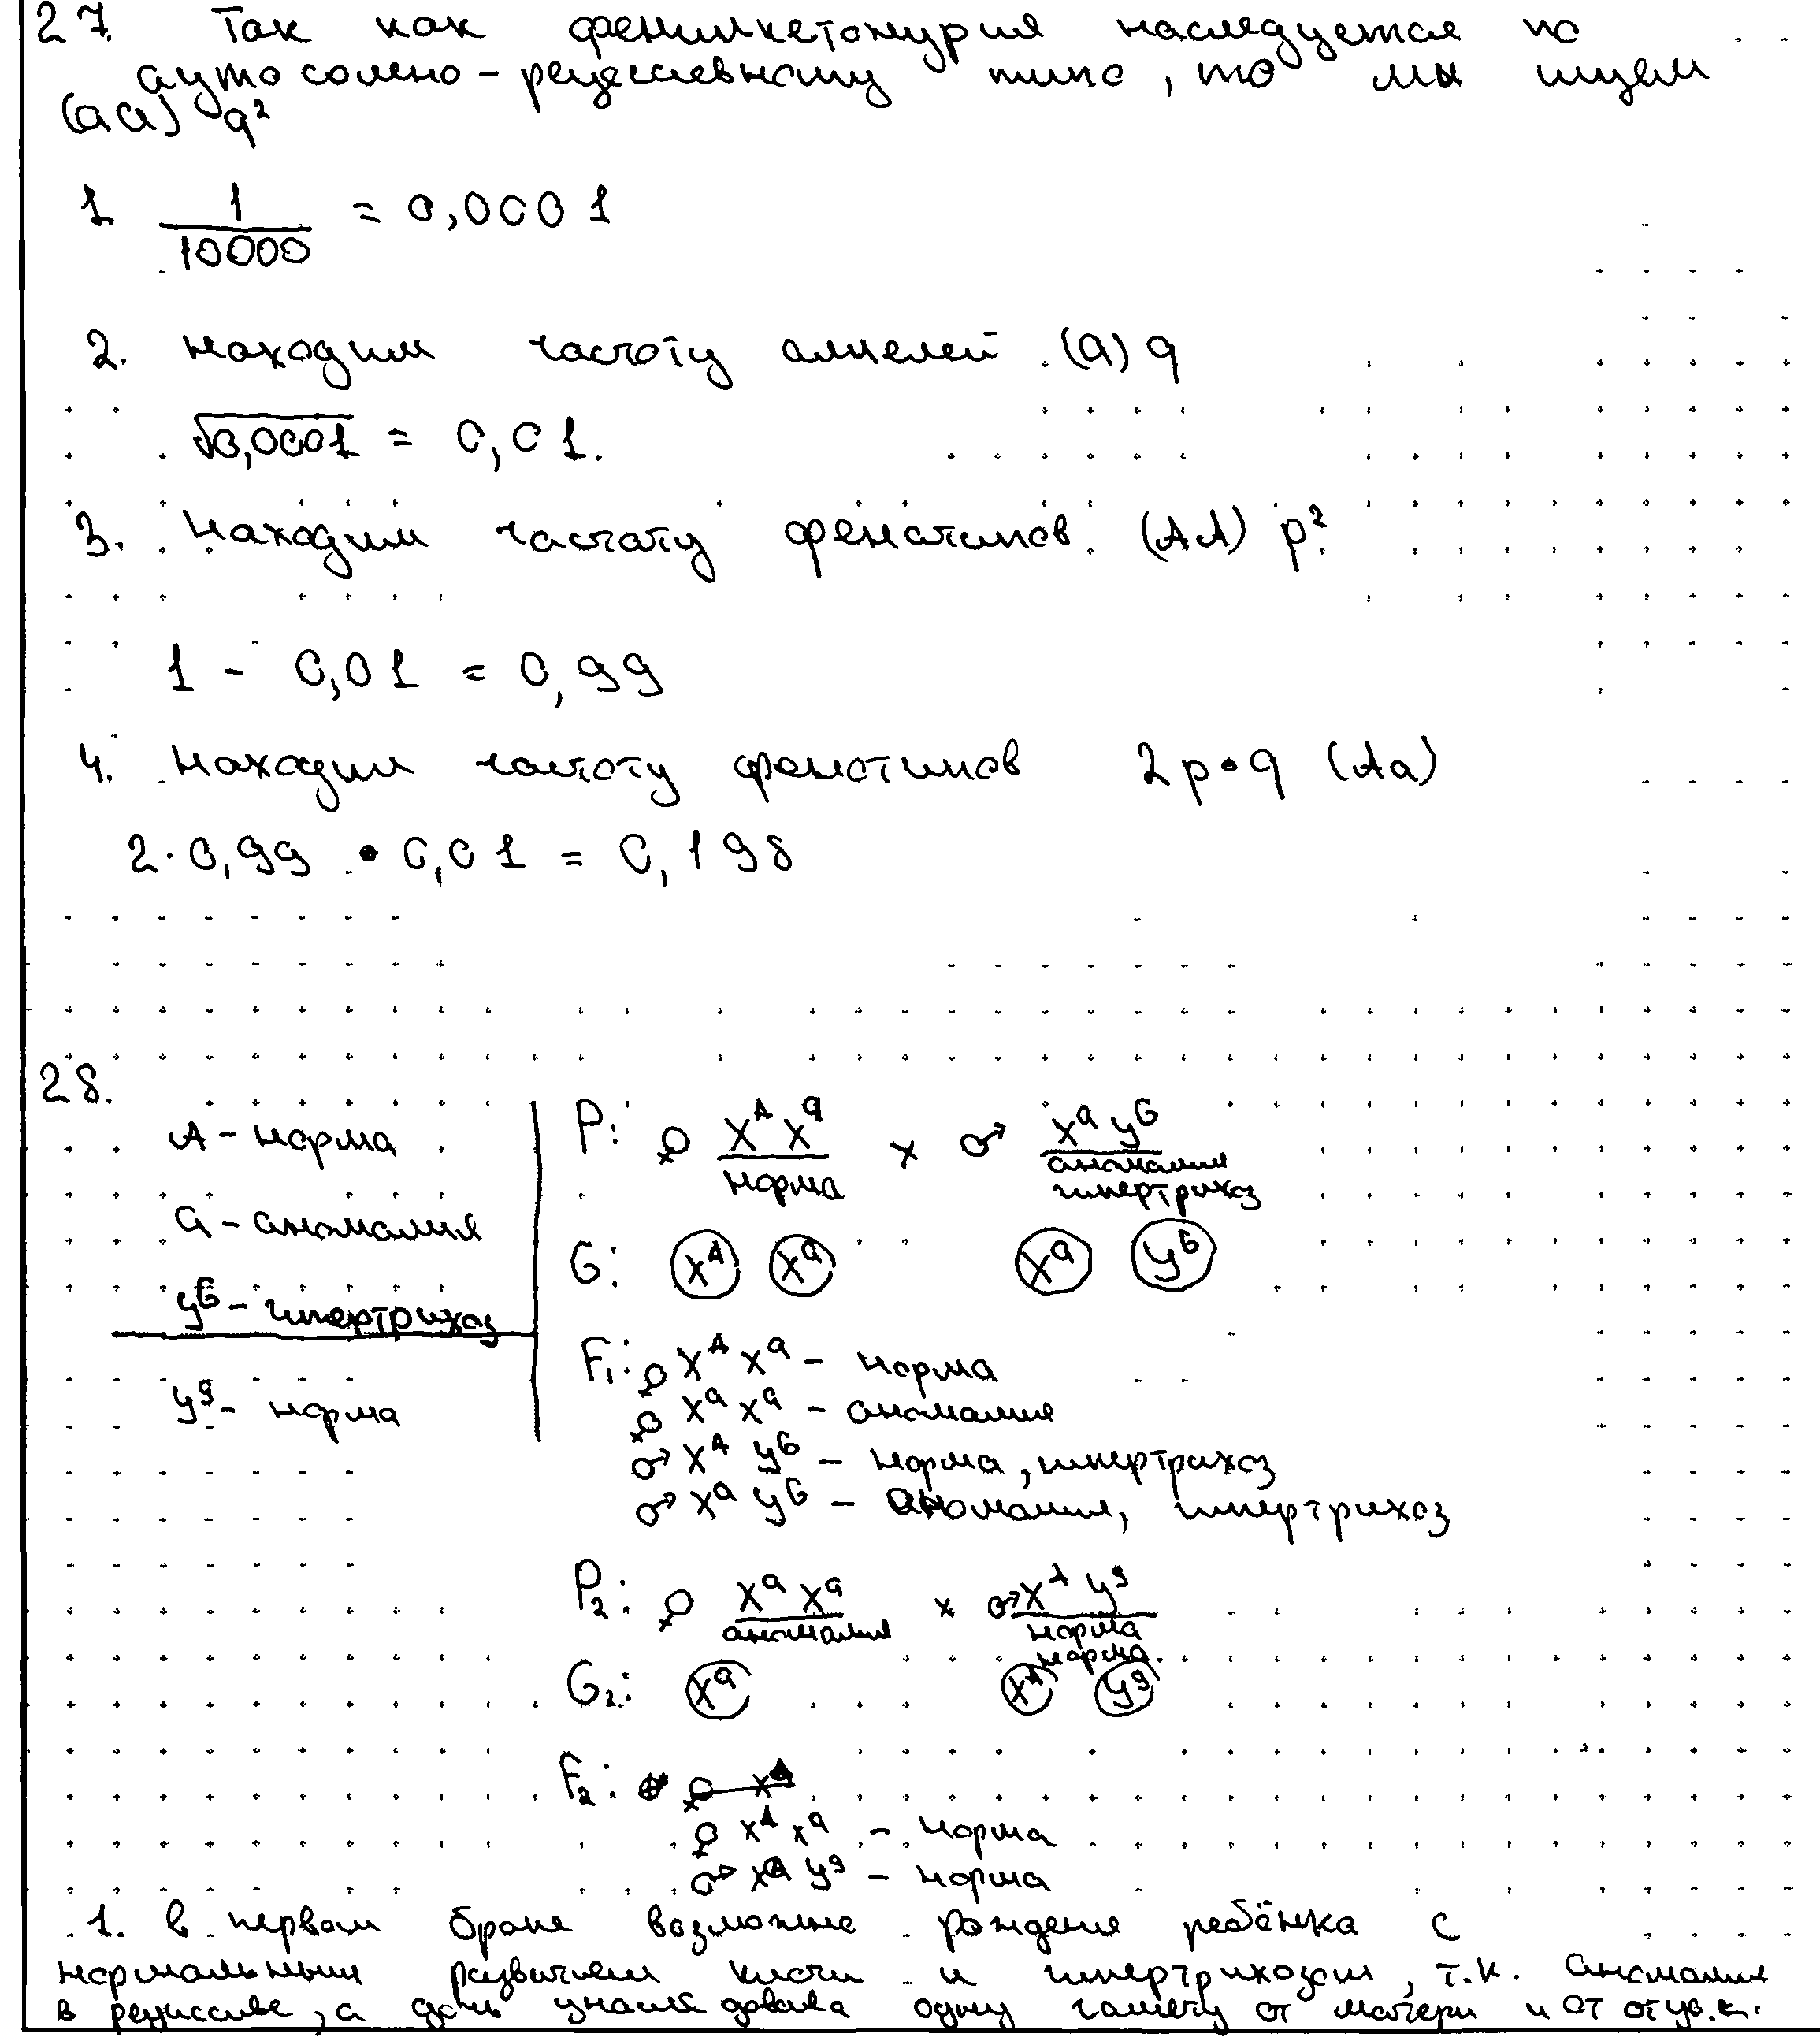 27. Так как фенилкетонурия наследуется по
аутосомно-рецессивному типо, то мы ищем
(aa) q²
1 1/10000 = 0,0001
2. Находим частоту аллелей (a) q
√0,0001 = 0,01.
3. Находим частоту фенотипов (AA) p²
1 - 0,01 = 0,99
4. Находим частоту фенотипов 2p•q (Aa)
2·0,99 • 0,01 = 0,198
28.
A - норма
a - аномалия
y^G - гипертрихоз
y^g - норма
P: ♀ X^A X^a x ♂ X^a y^G
норма аномалия
гипертрихоз
G: X^A X^a X^a y^G
F₁: ♀ X^A X^a - норма
♀ X^a X^a - аномалия
♂ X^A y^G - норма, гипертрихоз
♂ X^a y^G - аномалия, гипертрихоз
P₂: ♀ X^a X^a x ♂ X^A y^g
аномалия норма
норма.
G₂: X^a X^A y^g
F₂:
♀ X^A X^a - норма
♂ X^a y^g - норма
1. В первом браке возможно рождение ребёнка с
нормальным развитием кисти и гипертрихозом, т.к. аномалия
в рециссиве, а дочь унаследовала одну гамету от матери и от отца.